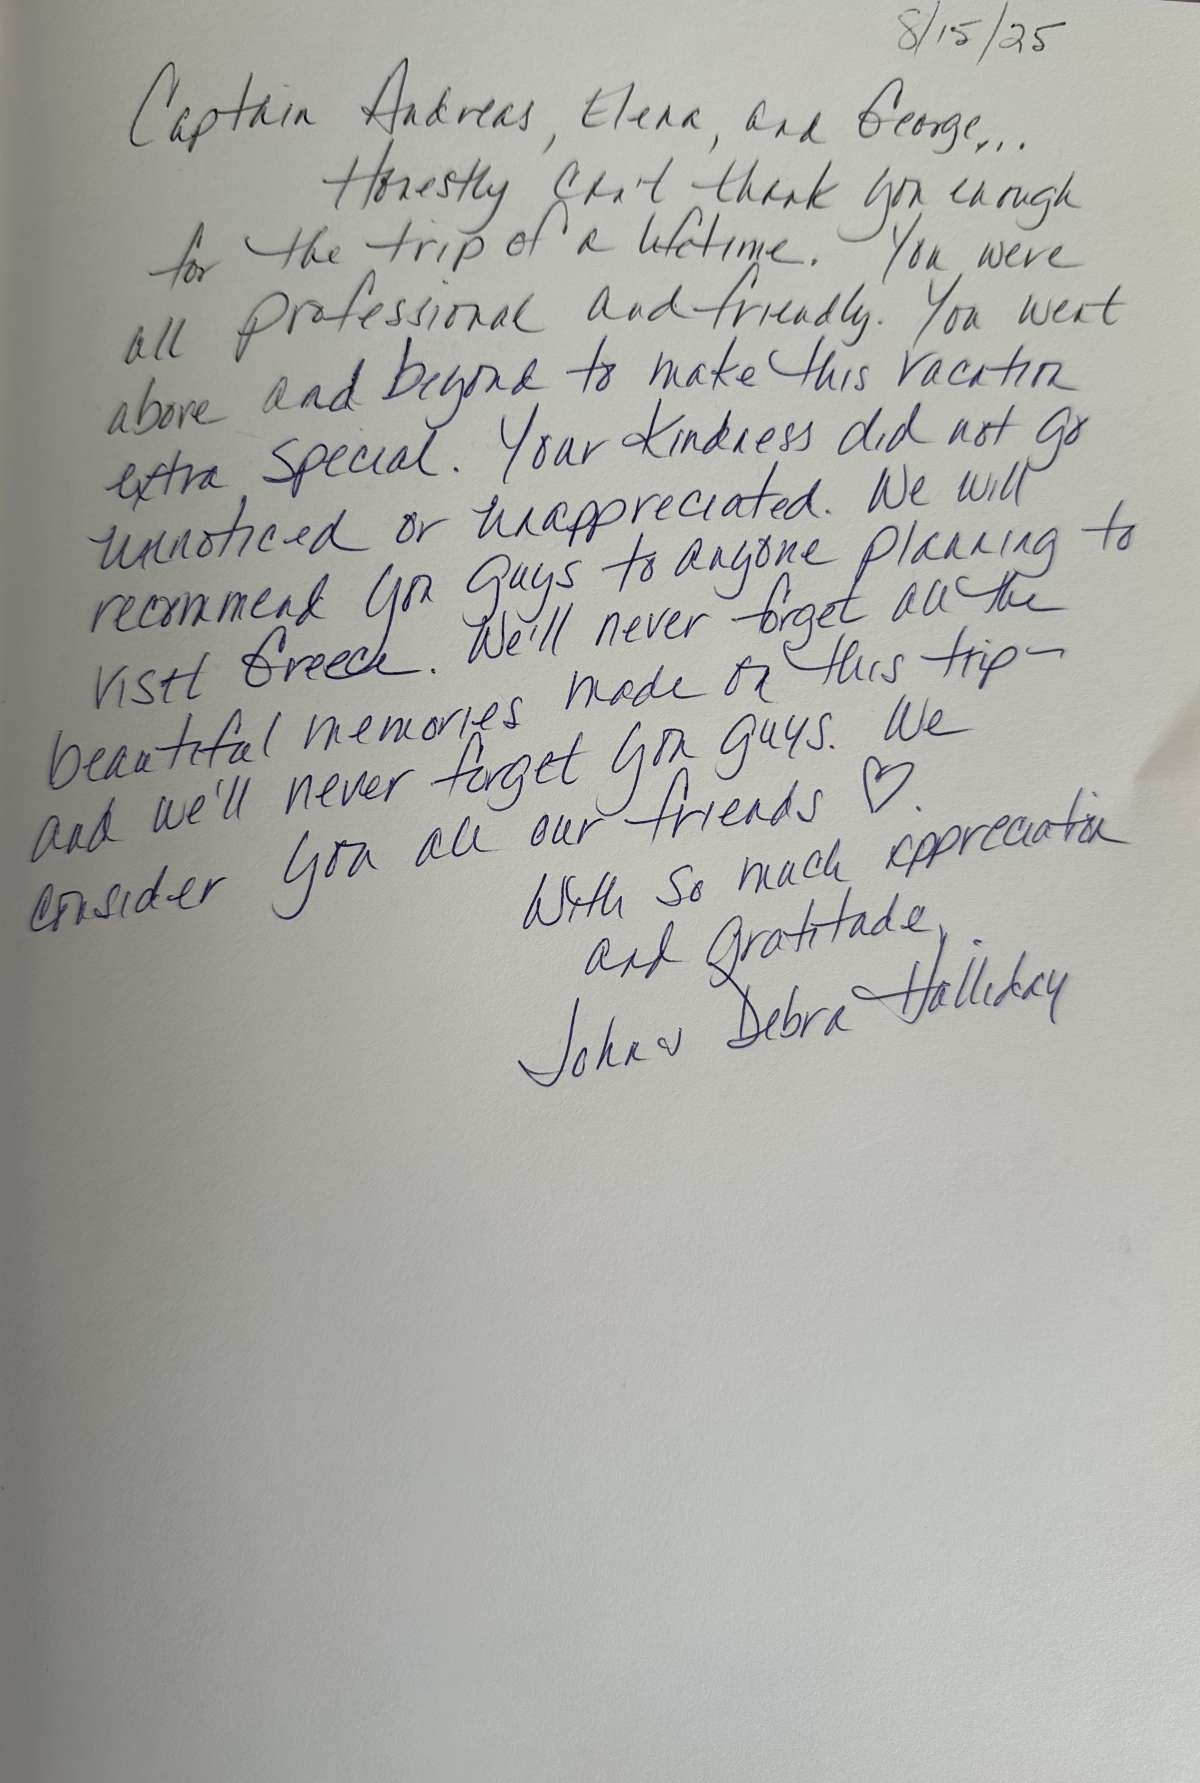 8/15/25
Captain Andreas, Elena, and George...
Honestly can't thank you enough
for the trip of a lifetime. You were
all professional and friendly. You went
above and beyond to make this vacation
extra special. Your kindness did not go
unnoticed or unappreciated. We will
recommend you guys to anyone planning to
visit Greece. We'll never forget all the
beautiful memories made on this trip -
and we'll never forget you guys. We
consider you all our friends ♡.
With so much appreciation
and gratitude,
John & Debra Halliday